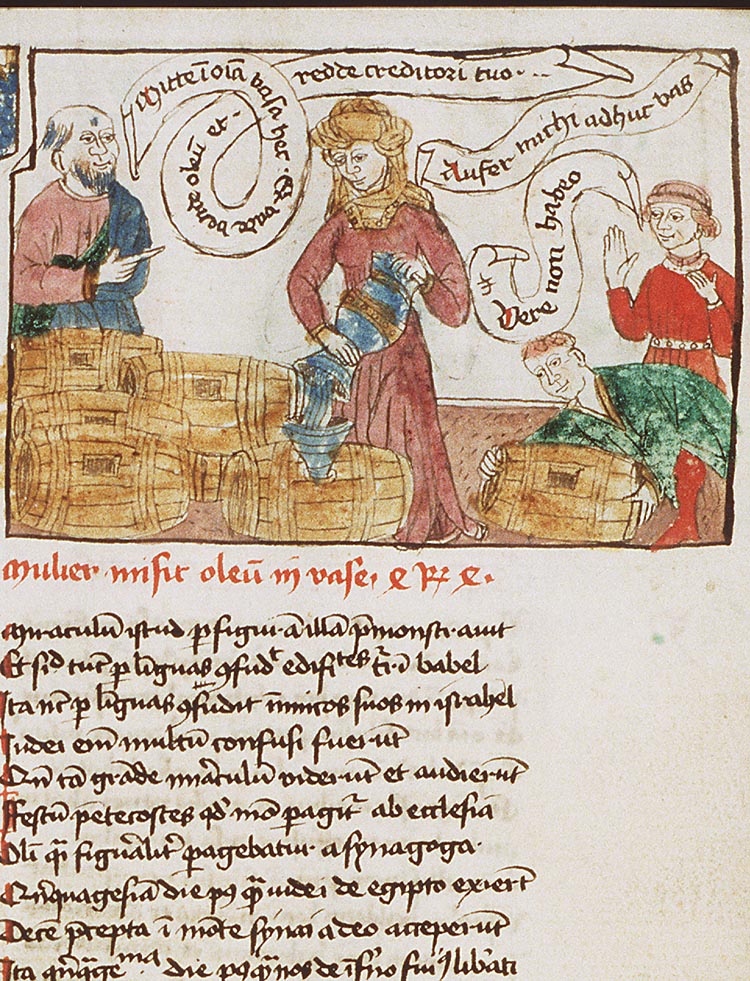 Mitte i oīa vasa hec. Et vade vende oleū et.
redde creditori tuo...
Aufer michi adhuc vas
Vere non habeo
Mulier misit oleū in vase. e
Miraculū istud p figurā illā pmonstravit
Et sic tūc p līguas ꝯfud edifi tes i babel
Ita nūc p līguas ꝯfudit inimicos suos in israhel
Iudei em multū confusi fuerūt
Qn tā grāde miraculū viderūt et audierūt
Festū pētecostes qd mō pagit ab ecclesia
Olī figuralit pagebatur a synagoga.
Quīquagesīa die pꝰ iudei de egipto exierūt
Decē pcepta ī mōte synai a deo acceperūt
Ita die nos de īfno liberati